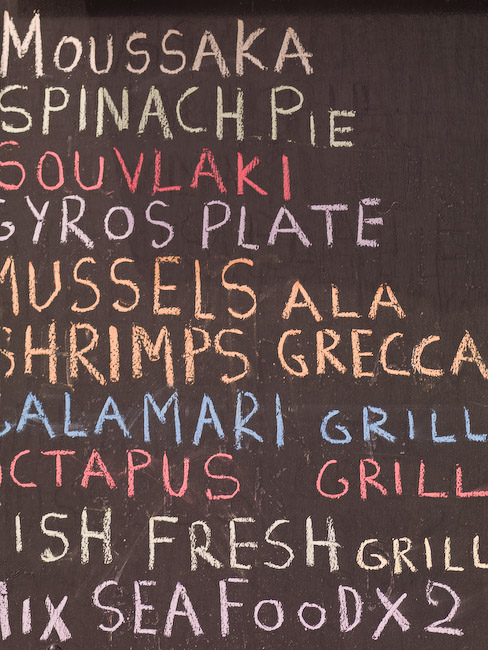 MOUSSAKA
SPINACH PIE
SOUVLAKI
GYROS PLATE
MUSSELS ALA
SHRIMPS GRECCA
CALAMARI GRILL
OCTAPUS GRILL
ISH FRESH GRILL
MIX SEAFOOD X 2